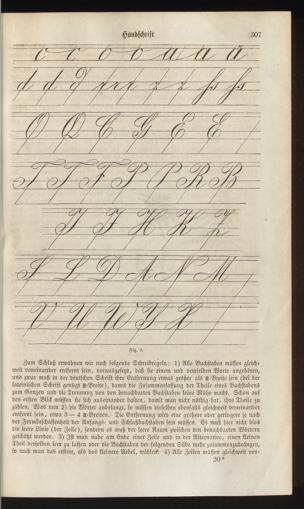 Handschrift
307
c c o o a a a
O Q C G E E
T T F P P R B
I J H K Z
S L D A N M
V U W Y X
Fig. 9.
Zum Schluß erwähnen wir noch folgende Schreibregeln: 1) Alle Buchstaben müssen gleich-
weit voneinander entfernt sein, vorausgesetzt, daß sie einem und demselben Worte angehören,
und zwar muß in der deutschen Schrift ihre Entfernung etwas größer als n-Breite sein (bei der
lateinischen Schrift genügt n-Breite), damit die Zusammenstellung der Theile eines Buchstabens
zum Ganzen und die Trennung von den benachbarten Buchstaben keine Mühe macht. Schon auf
den ersten Blick müssen sie sich auseinander halten, damit man nicht nöthig hat, ihre Theile zu
zählen. Was nun 2) die Wörter anbelangt, so müssen dieselben ebenfalls gleichweit voneinander
entfernt sein, etwa 3 — 4 n-Breiten. Die Entfernung wird eine größere oder geringere je nach
der Formbeschaffenheit der Anfangs- und Schlußbuchstaben sein müssen. Es muß hier nicht bloß
die leere Linie (der Zeile), sondern es muß der leere Raum zwischen den benachbarten Wörtern
geschätzt werden. 3) Ist man nahe am Ende einer Zeile und in der Alternative, einen kleinen
Theil desselben leer zu lassen oder die Buchstaben der folgenden Silbe mehr zusammenzudrängen,
so wird man das erstere, als das kleinere Uebel, wählen. 4) Alle Zeilen müssen gleichweit von-
20*